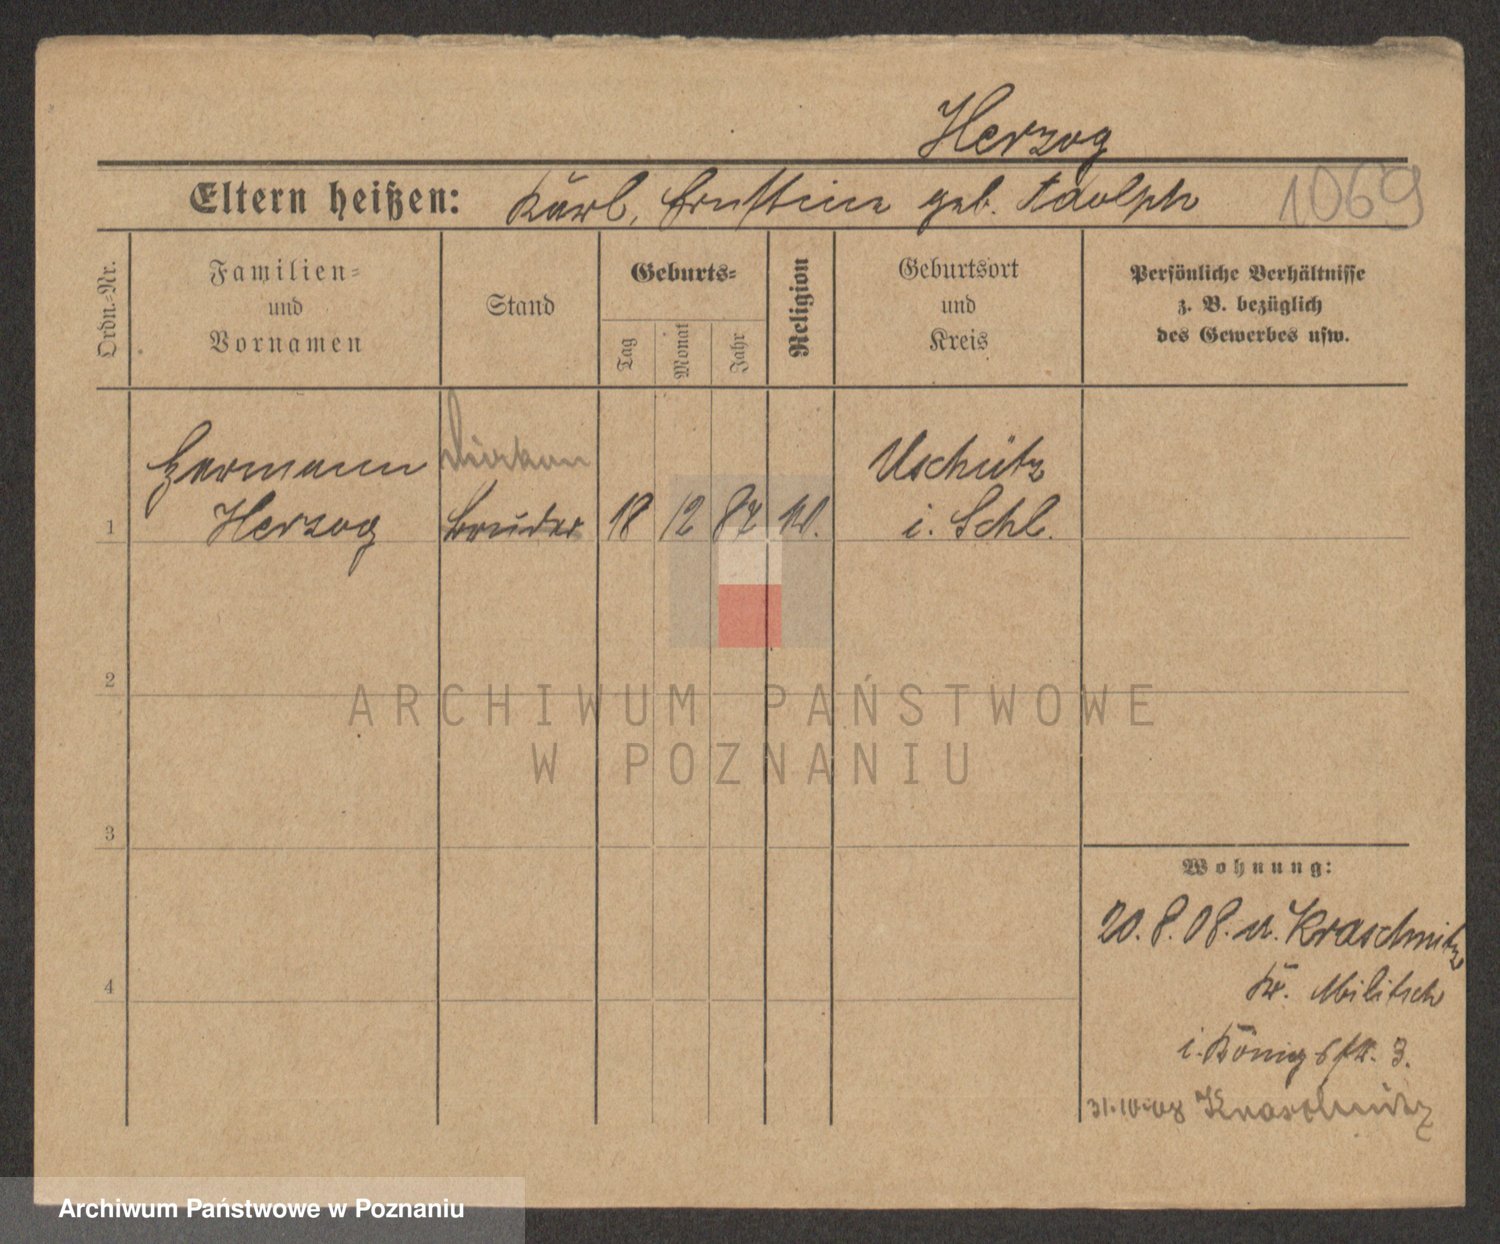 Herzog
Eltern heißen: Karl, Ernstine geb. Adolph 1069
Ordn.-Nr.
Familien-
und
Vornamen
Stand
Geburts-
Tag
Monat
Jahr
Religion
Geburtsort
und
Kreis
Persönliche Verhältnisse
z. B. bezüglich
des Gewerbes usw.
Hermann
Herzog
Diakon
Bruder
1
18 12 87
Uschütz
i. Schl.
2
3
4
ARCHIWUM PAŃSTWOWE
W POZNANIU
Wohnung:
20.8.08. n. Kraschnitz
Kr. Militsch
i. Königstr. 3.
31.10.08 Kraschnitz
Archiwum Państwowe w Poznaniu